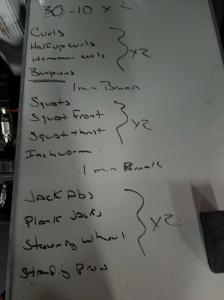 30-10 x 2
Curls
Half up curls
Hammer curls
x2
Burpees
1 min Break
Squats
Squat front
Squat thrust
x2
Inchworm
1 min Break
Jack Abs
Plank Jacks
Steering wheel
x2
Standing